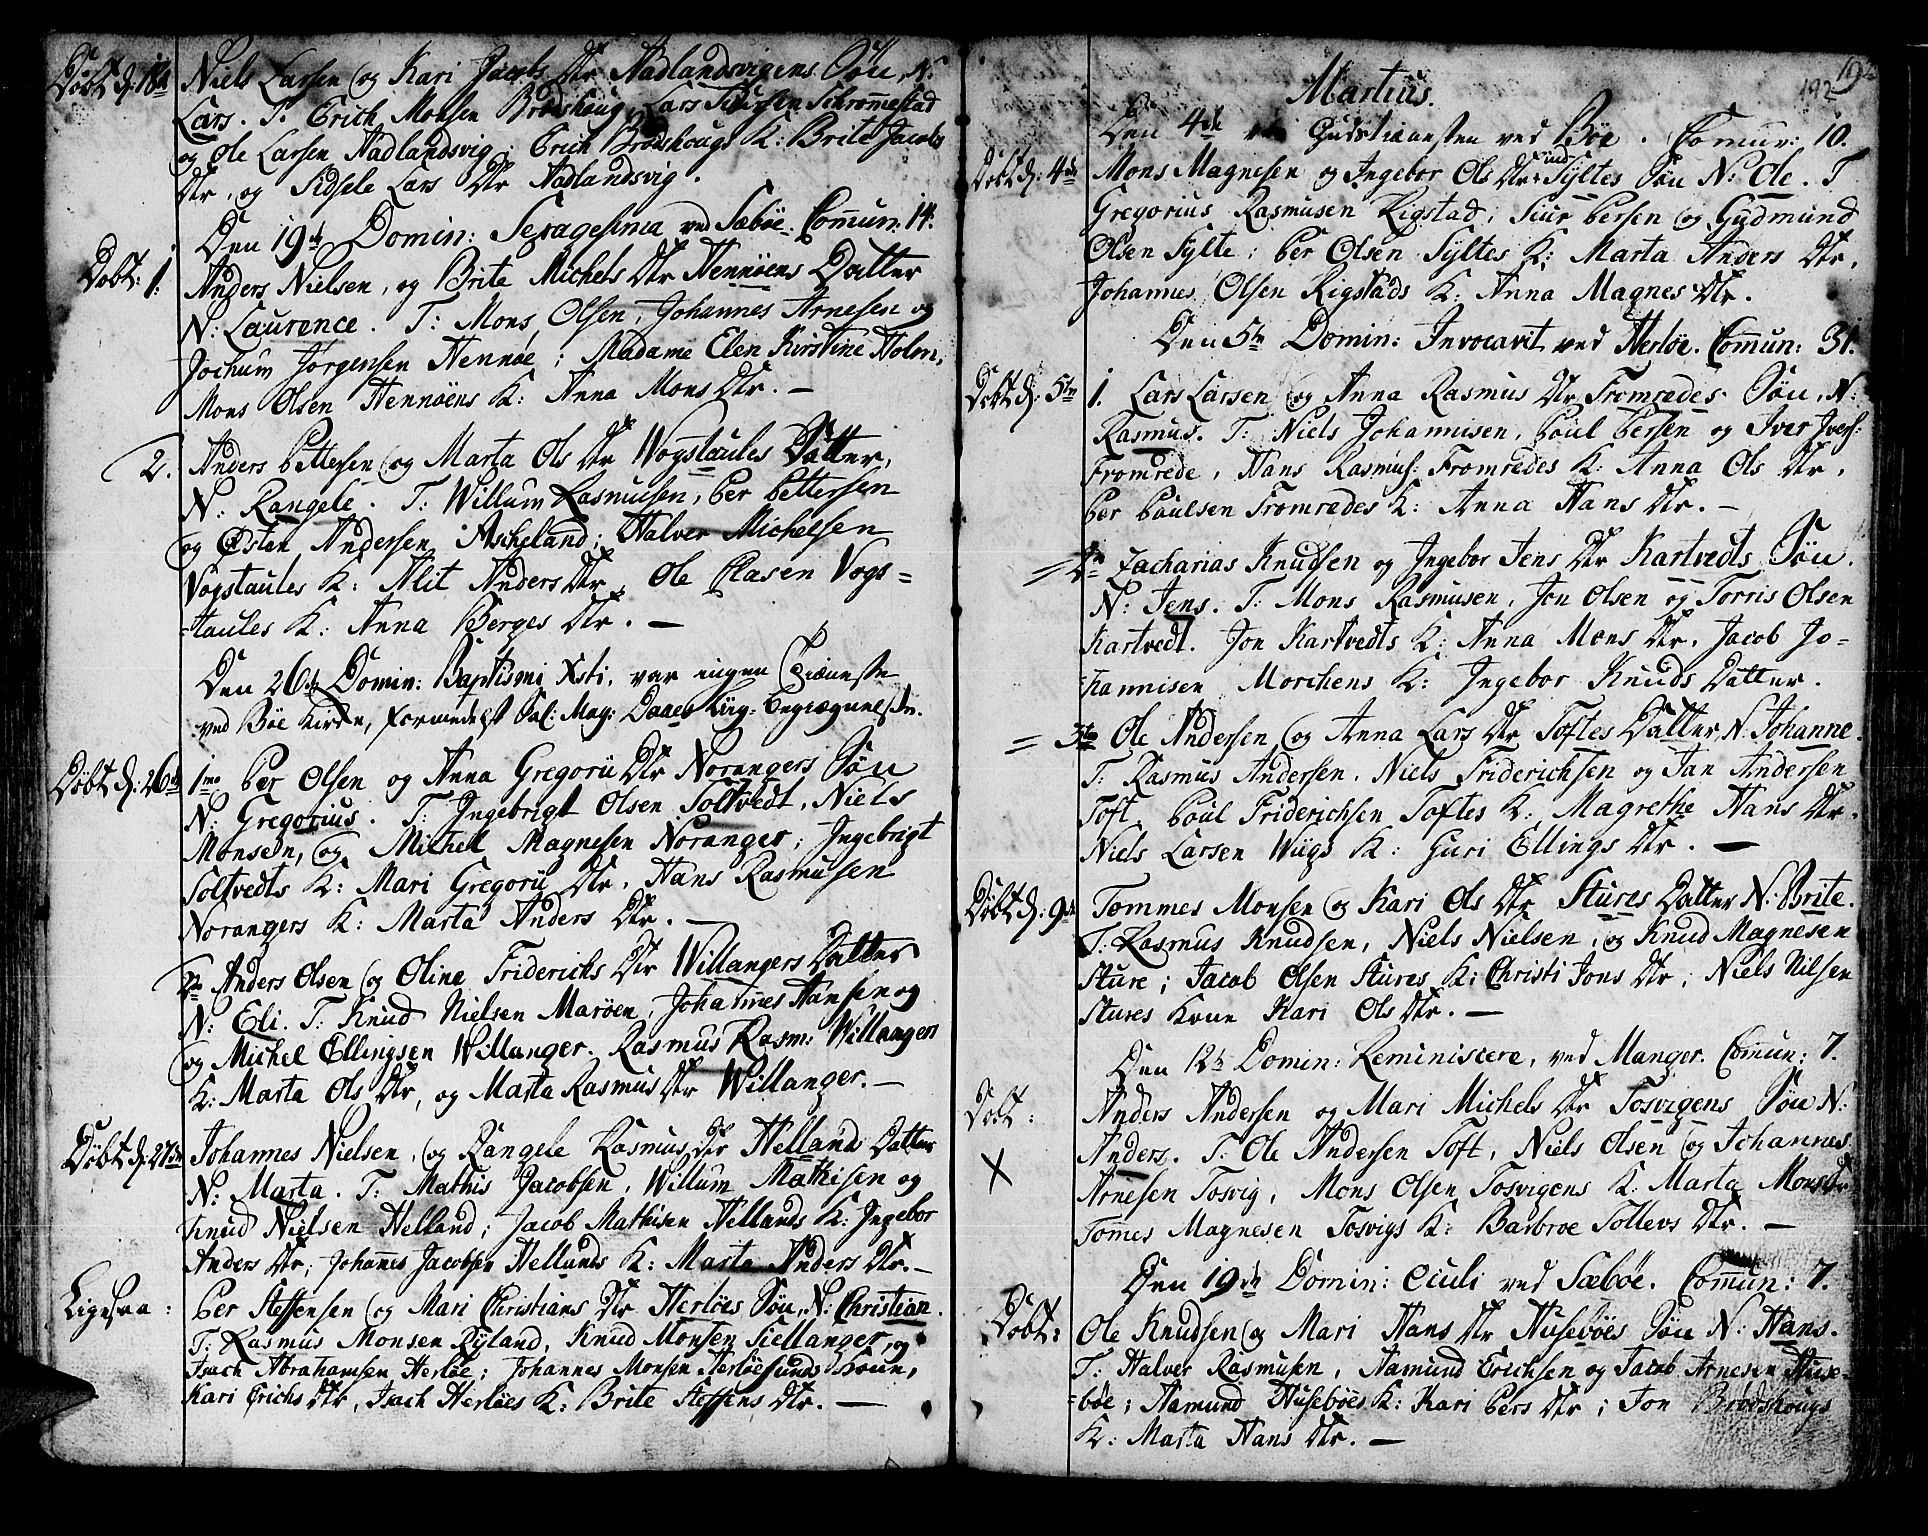 Döbt d: 18de Niels Larsen og Kari Jacobs Dtr Hadlandsvigens Søn, N:
Lars. T. Erich Monsen Brødshoug, Lars Siursen Schrommestad
og Ole Larsen Hadlandsvig; Erich Brødshougs K: Brite Jacobs
Dtr, og Sidsele Lars Dtr Hadlandsvig.
Den 19de Domin: Sexagesima ved Sæbøe. Com̅un: 14.
Døbt: 1. Anders Nielsen, og Brite Michels Dtr Hennøens Datter
N: Laurence. T: Mons Olsen, Johannes Arnesen og
Jochum Jørgensen Hennøe; Madame Elen Kirstine Holm,
Mons Olsen Hennøens K: Anna Mons Dtr. –
2. Anders Pettersen og Marta Ols Dtr Wogstaules Datter,
N: Rangele. T: Willum Rasmusen, Per Pettersen
og Østen Andersen Ascheland; Halver Michelsen
Vogstaules K: Alit Anders Dtr, Ole Clasen Vogs=
=taules K: Anna Berges Dtr. –
Den 26de Domin: Baptismi Xsti, var ingen Tieneste
ved Bøe Kirke, formedelst Sal: Mag: Daaes Liig-Begrægnelse.
Døbt d: 26de 1mo Per Olsen og Anna Gregorii Dtr Norangers Søn
N: Gregorius. T: Ingebrigt Olsen Toltvedt, Niels
Monsen, og Michel Magnesen Noranger; Ingebrigt
Toltvedts K: Mari Gregorii Dtr, Hans Rasmusen
Norangers K: Marta Anders Dtr. –
2do Anders Olsen og Oline Friderichs Dtr Willangers Datter
N: Eli. T: Knud Nielsen Marøen, Johannes Hansen og
og Michel Ellingsen Willanger. Rasmus Rasm: Willangers
K: Marta Ols Dtr, og Marta Rasmus Dtr Willanger. –
Döbt d: 27de Johannes Nielsen, og Rangele Rasmus Dtr Hellands Datter
N: Marta. T: Mathis Jacobsen, Willum Mathisen og
Knud Nielsen Helland; Jacob Mathisen Hellands K: Ingebor
Anders Dtr; Johannes Jacobsen Hellands K: Marta Anders Dtr. –
Ligesaa: Per Steffensen og Mari Christians Dtr Herløes Søn, N: Christian.
T: Rasmus Monsen Ryland, Knud Monsen Siellanger, og
Isach Abrahamsen Herløe; Johannes Monsen Herløesunds Koun,
Kari Erichs Dtr, Isach Herløes K: Brite Steffens Dtr. –
192
Martius.
Den 4de Gudstienesten ved Bøe. Com̅un: 10.
Døbt d: 4de Mons Magnesen og Ingebor Ols Dtr Syltes Søn N: Ole. T
Gregorius Rasmusen Rigstad; Siur Persen og Gudmund
Olsen Sylte; Per Olsen Syltes K: Marta Anders Dtr,
Johannes Olsen Rigstads K: Anna Magnes Dtr.
Den 5te Domin: Invocavit ved Herløe. Com̅un: 31.
Døbt d: 5te 1. Lars Larsen og Anna Rasmus Dtr Fromredes Søn, N:
Rasmus. T: Niels Johannisen, Poul Persen og Iver Ivers:
Fromrede, Hans Rasmus: Fromredes K: Anna Ols Dtr,
Per Poulsen Fromredes K: Anna Hans Dtr. –
= 2do Zacharias Knudsen og Ingebor Jens Dtr Kartvedts Søn.
N: Jens. T: Mons Rasmusen, Jon Olsen og Torris Olsen
Kartvedt. Jon Kartvedts K: Anna Mons Dtr, Jacob Jo=
=hannisen Morchens K: Ingebor Knuds Datter.
= 3tio Ole Andersen og Anna Lars Dtr Toftes Datter, N: Johanne.
T: Rasmus Andersen, Niels Friderichsen og Jan Andersen
Toft, Poul Friderichsen Toftes K: Magrethe Hans Dtr.
Niels Larsen Wiigs K: Guri Ellings Dtr. –
Døbt d: 9de Tommes Monsen og Kari Ols Dtr Stures Datter N: Brite.
T: Rasmus Knudsen, Niels Nielsen, og Knud Magnesen
Sture; Jacob Olsen Stures K: Christi Jons Dtr; Niels Nilsen
Stures Kone Kari Ols Dtr. –
Den 12te Domin: Reminiscere, ved Manger. Com̅un: 7.
Døbt: Anders Andersen og Mari Michels Dtr Tosvigens Søn N:
X Anders. T: Ole Andersen Toft, Niels Olsen og Johannes
Arnesen Tosvig, Mons Olsen Tosvigens K: Marta Mons Dtr
Tomes Magnesen Tosvigs K: Barbroe Tollevs Dtr. –
Den 19de Domin: Oculi ved Sæbøe. Com̅un: 7.
Døbt: Ole Knudsen og Mari Hans Dtr Husebøes Søn N: Hans.
T: Halver Rasmusen, Aamund Erichsen og Jacob Arnesen Huse=
=bøe; Aamund Husebøes K: Kari Pers Dtr; Jon Brødshougs
K: Marta Hans Dtr. –